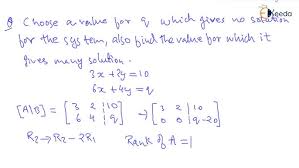 Ekeeda
Q Choose a value for q which gives no solution
for the system, also find the value for which it
gives many solution.
3x + 2y = 10
6x + 4y = q
[A|B] = [3 2 | 10 → [3 2 | 10
6 4 | q] 0 0 | q-20]
R₂ → R₂ - 2R₁ Rank of A = 1